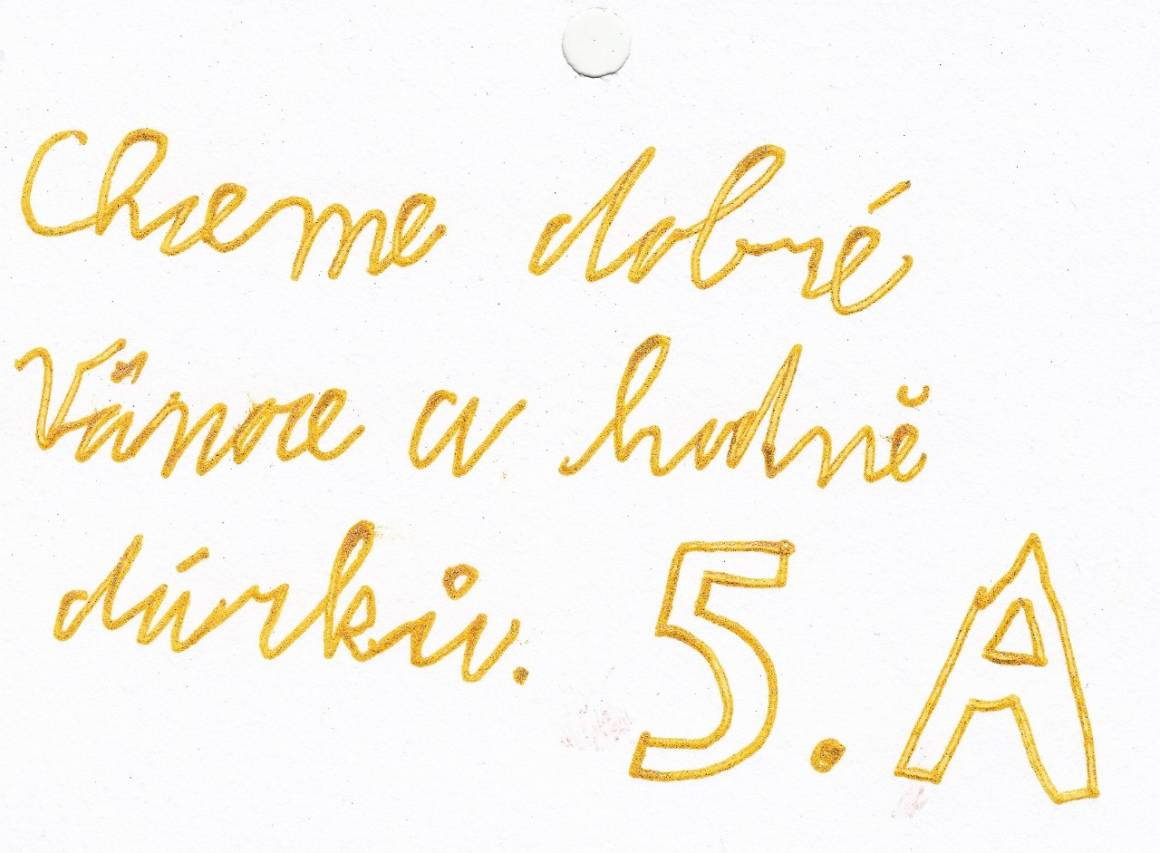 Chceme dobré
Vánoce a hodně
dárků. 5. A